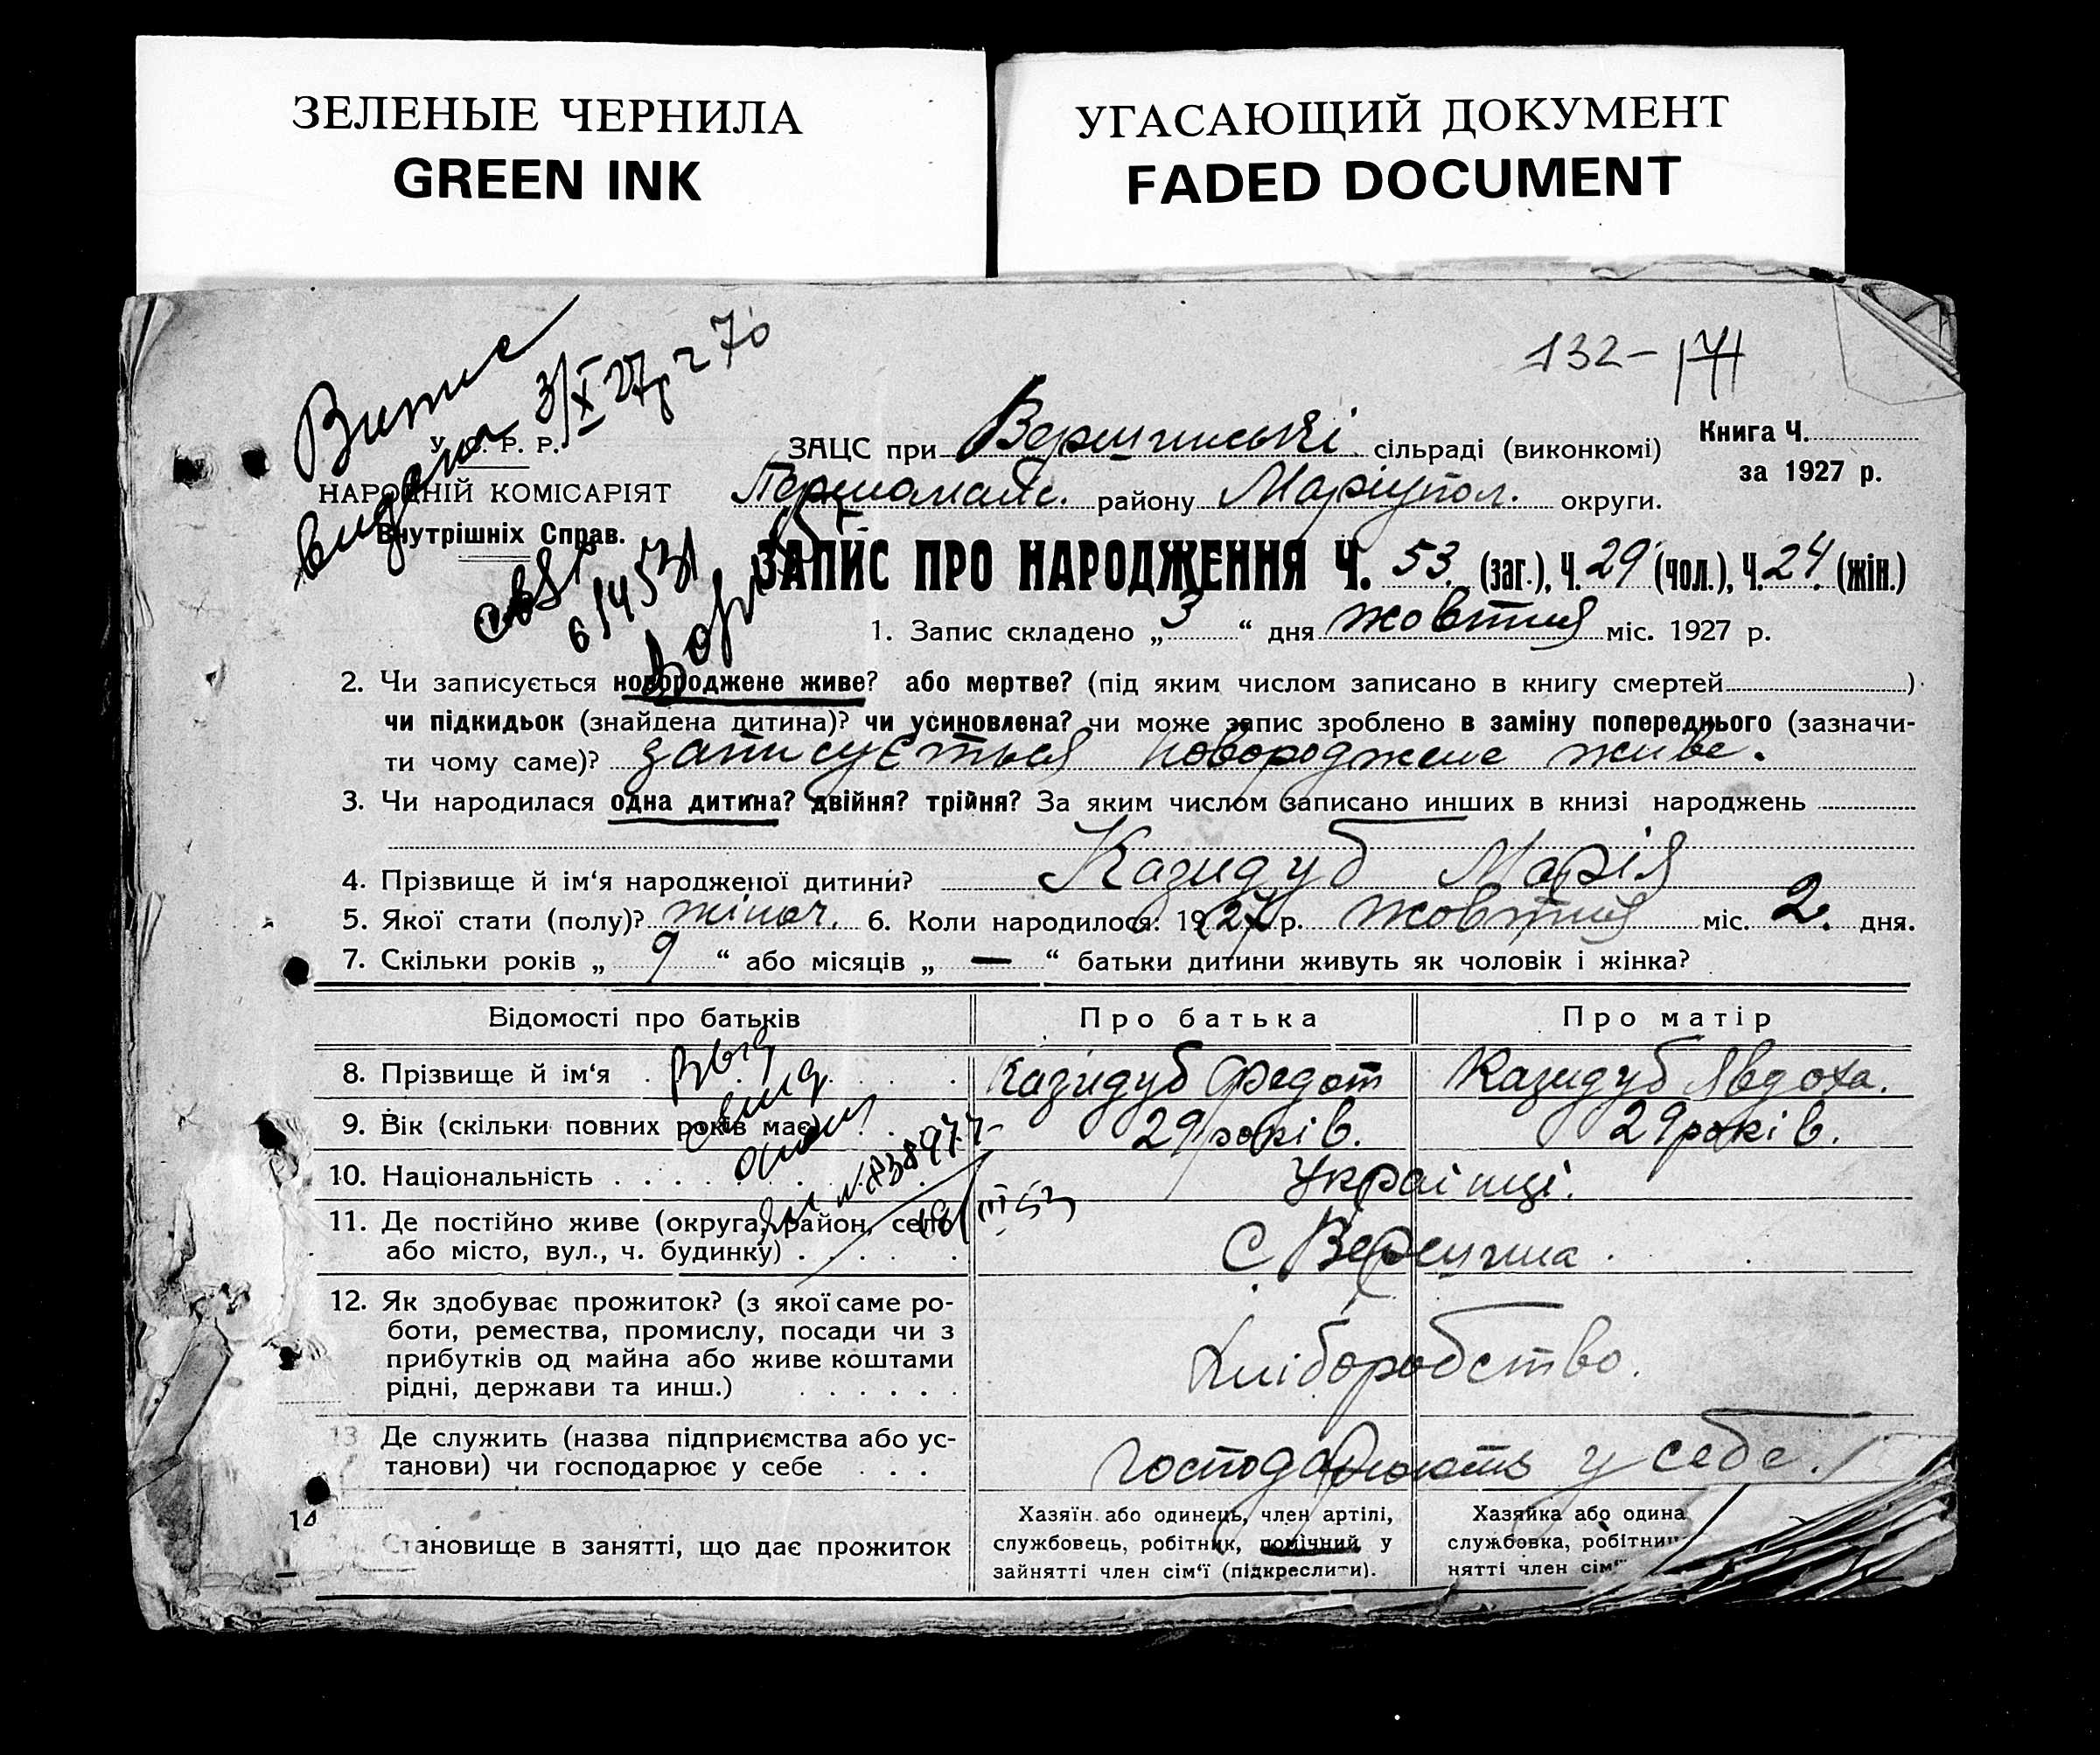 ЗЕЛЕНЫЕ ЧЕРНИЛА
GREEN INK
УГАСАЮЩИЙ ДОКУМЕНТ
FADED DOCUMENT
132 – 171
Витяг
видано 3/X 27р
У. С. Р. Р.
НАРОДНІЙ КОМІСАРІЯТ
Внутрішніх Справ.
Книга Ч.
за 1927 р.
ЗАЦС при Вершинські сільраді (виконкомі)
Першомайс. району Маріупол. округи.
ЗАПИС ПРО НАРОДЖЕННЯ Ч. 53 (заг.), Ч. 29 (чол.), Ч. 24 (жін.)
1. Запис складено „ 3 “ дня жовтня міс. 1927 р.
2. Чи записується новороджене живе? або мертве? (під яким числом записано в книгу смертей )
чи підкидьок (знайдена дитина)? чи усиновлена? чи може запис зроблено в заміну попереднього (зазначи-
ти чому саме)? записується новороджене живе.
3. Чи народилася одна дитина? двійня? трійня? За яким числом записано инших в книзі народжень
4. Прізвище й ім‘я народженої дитини? Казидуб Марія
5. Якої стати (полу)? жіноч. 6. Коли народилося: 1927 р. жовтня міс. 2. дня.
7. Скільки років „ 9 “ або місяців „ — “ батьки дитини живуть як чоловік і жінка?
Відомості про батьків
Про батька
Про матір
8. Прізвище й ім‘я
Казидуб Федот
Казидуб Явдоха.
9. Вік (скільки повних років має)
29 років.
29 років.
10. Національність
Українці.
11. Де постійно живе (округа, район, село
або місто, вул., ч. будинку)
с Вершина.
12. Як здобуває прожиток? (з якої саме ро-
боти, ремества, промислу, посади чи з
прибутків од майна або живе коштами
рідні, держави та инш.)
Хліборобство.
13 Де служить (назва підприємства або ус-
танови) чи господарює у себе
господарюють у себе.
14
тановище в занятті, що дає прожиток
Хазяїн або одинець, член артілі,
службовець, робітник, помічний у
зайнятті член сім‘ї (підкреслити).
Хазяйка або одина
службовка, робітни
нятті член сім‘